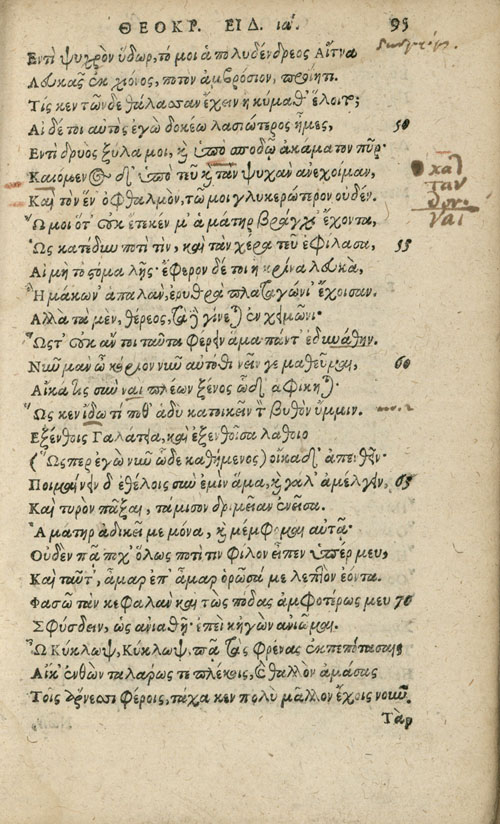 ΘΕΟΚΡ. ΕΙΔ. ια΄. 95
Εντὶ ψυχρὸν ὕδωρ, τό μοι ἁ πολυδένδρεος Αἴτνα
Λευκᾶς ἐκ χιόνος, ποτὸν ἀμβρόσιον, προΐητι.
Τίς κεν τῶνδε θάλασσαν ἔχειν ἢ κύμαθ' ἕλοιτο;
Αἰ δέ τοι αὐτὸς ἐγὼ δοκέω λασιώτερος ἦμες, 50
Εντὶ δρυὸς ξύλα μοι, καὶ ὑπὸ σποδῷ ἀκάματον πῦρ·
Καιόμενος δ' ὑπὸ τεῦ καὶ τὰν ψυχὰν ἀνεχοίμαν,
Καὶ τὸν ἕν' ὀφθαλμὸν, τῶ μοι γλυκερώτερον οὐδέν.
Ὤ μοι ὅτ' οὐκ ἔτεκέν μ' ἁ μάτηρ βράγχι' ἔχοντα,
Ὡς κατέδυν ποτὶ τὶν, καὶ τὰν χέρα τεῦ ἐφίλασα, 55
Αἰ μὴ τὸ στόμα λῇς· ἔφερον δέ τοι ἢ κρίνα λευκὰ,
Ἢ μάκων' ἁπαλὰν, ἐρυθρὰ πλαταγώνι' ἔχοισαν.
Αλλὰ τὰ μὲν, θέρεος, τὰ δὲ γίνεται ἐν χειμῶνι·
Ὥστ' οὐκ ἄν τοι ταῦτα φέρειν ἅμα πάντ' ἐδυνάθην.
Νῦν μὰν ὦ κόριον νῦν αὐτόθι νεῖν γε μαθεῦμαι, 60
Αἴκά τις σὺν ναῒ πλέων ξένος ὧδ' ἀφίκηται·
Ὥς κεν ἴδω τί ποθ' ἁδὺ κατοικεῖν τὸν βυθὸν ὔμμιν.
Εξένθοις Γαλάτεια, καὶ ἐξενθοῖσα λάθοιο
(Ὥσπερ ἐγὼ νῦν ὧδε καθήμενος) οἴκαδ' ἀπενθεῖν·
Ποιμαίνειν δ' ἐθέλοις σὺν ἐμὶν ἅμα, καὶ γάλ' ἀμέλγειν, 65
Καὶ τυρὸν πᾶξαι, τάμισον δριμεῖαν ἐνεῖσα.
Ἁ μάτηρ ἀδικεῖ με μόνα, καὶ μέμφομαι αὐτᾷ·
Οὐδὲν πᾶ ποχ' ὅλως ποτὶ τὶν φίλον εἶπεν ὑπέρ μευ,
Καὶ ταῦτ', ἆμαρ ἐπ' ἆμαρ ὁρῶσά με λεπτὸν ἐόντα.
Φασῶ τὰν κεφαλὰν καὶ τὼς πόδας ἀμφοτέρως μευ 70
Σφύσδειν, ὡς ἀνιαθῇ· ἐπεὶ κἠγὼν ἀνιῶμαι.
Ὦ Κύκλωψ, Κύκλωψ, πᾶ τὰς φρένας ἐκπεπότασαι;
Αἴκ' ἐνθὼν ταλάρως τε πλέκοις, καὶ θαλλὸν ἀμάσας
Ταῖς ἄρνεσσι φέροις, τάχα κεν πολὺ μᾶλλον ἔχοις νοῦν.
Τὰν